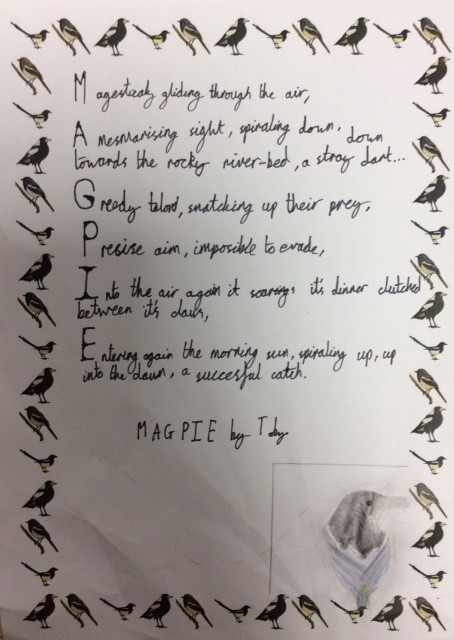 Magesticaly gliding through the air,
A mesmarising sight, spiraling down, down
towards the rocky river-bed, a stray dart...
Greedy talons, snatching up their prey,
Presise aim, imposible to evade,
Into the air again it soarings it's dinner clutched
between it's claws,
Entering again the morning sun, spiraling up, up
into the dawn, a succesful catch.
MAGPIE by Toby.